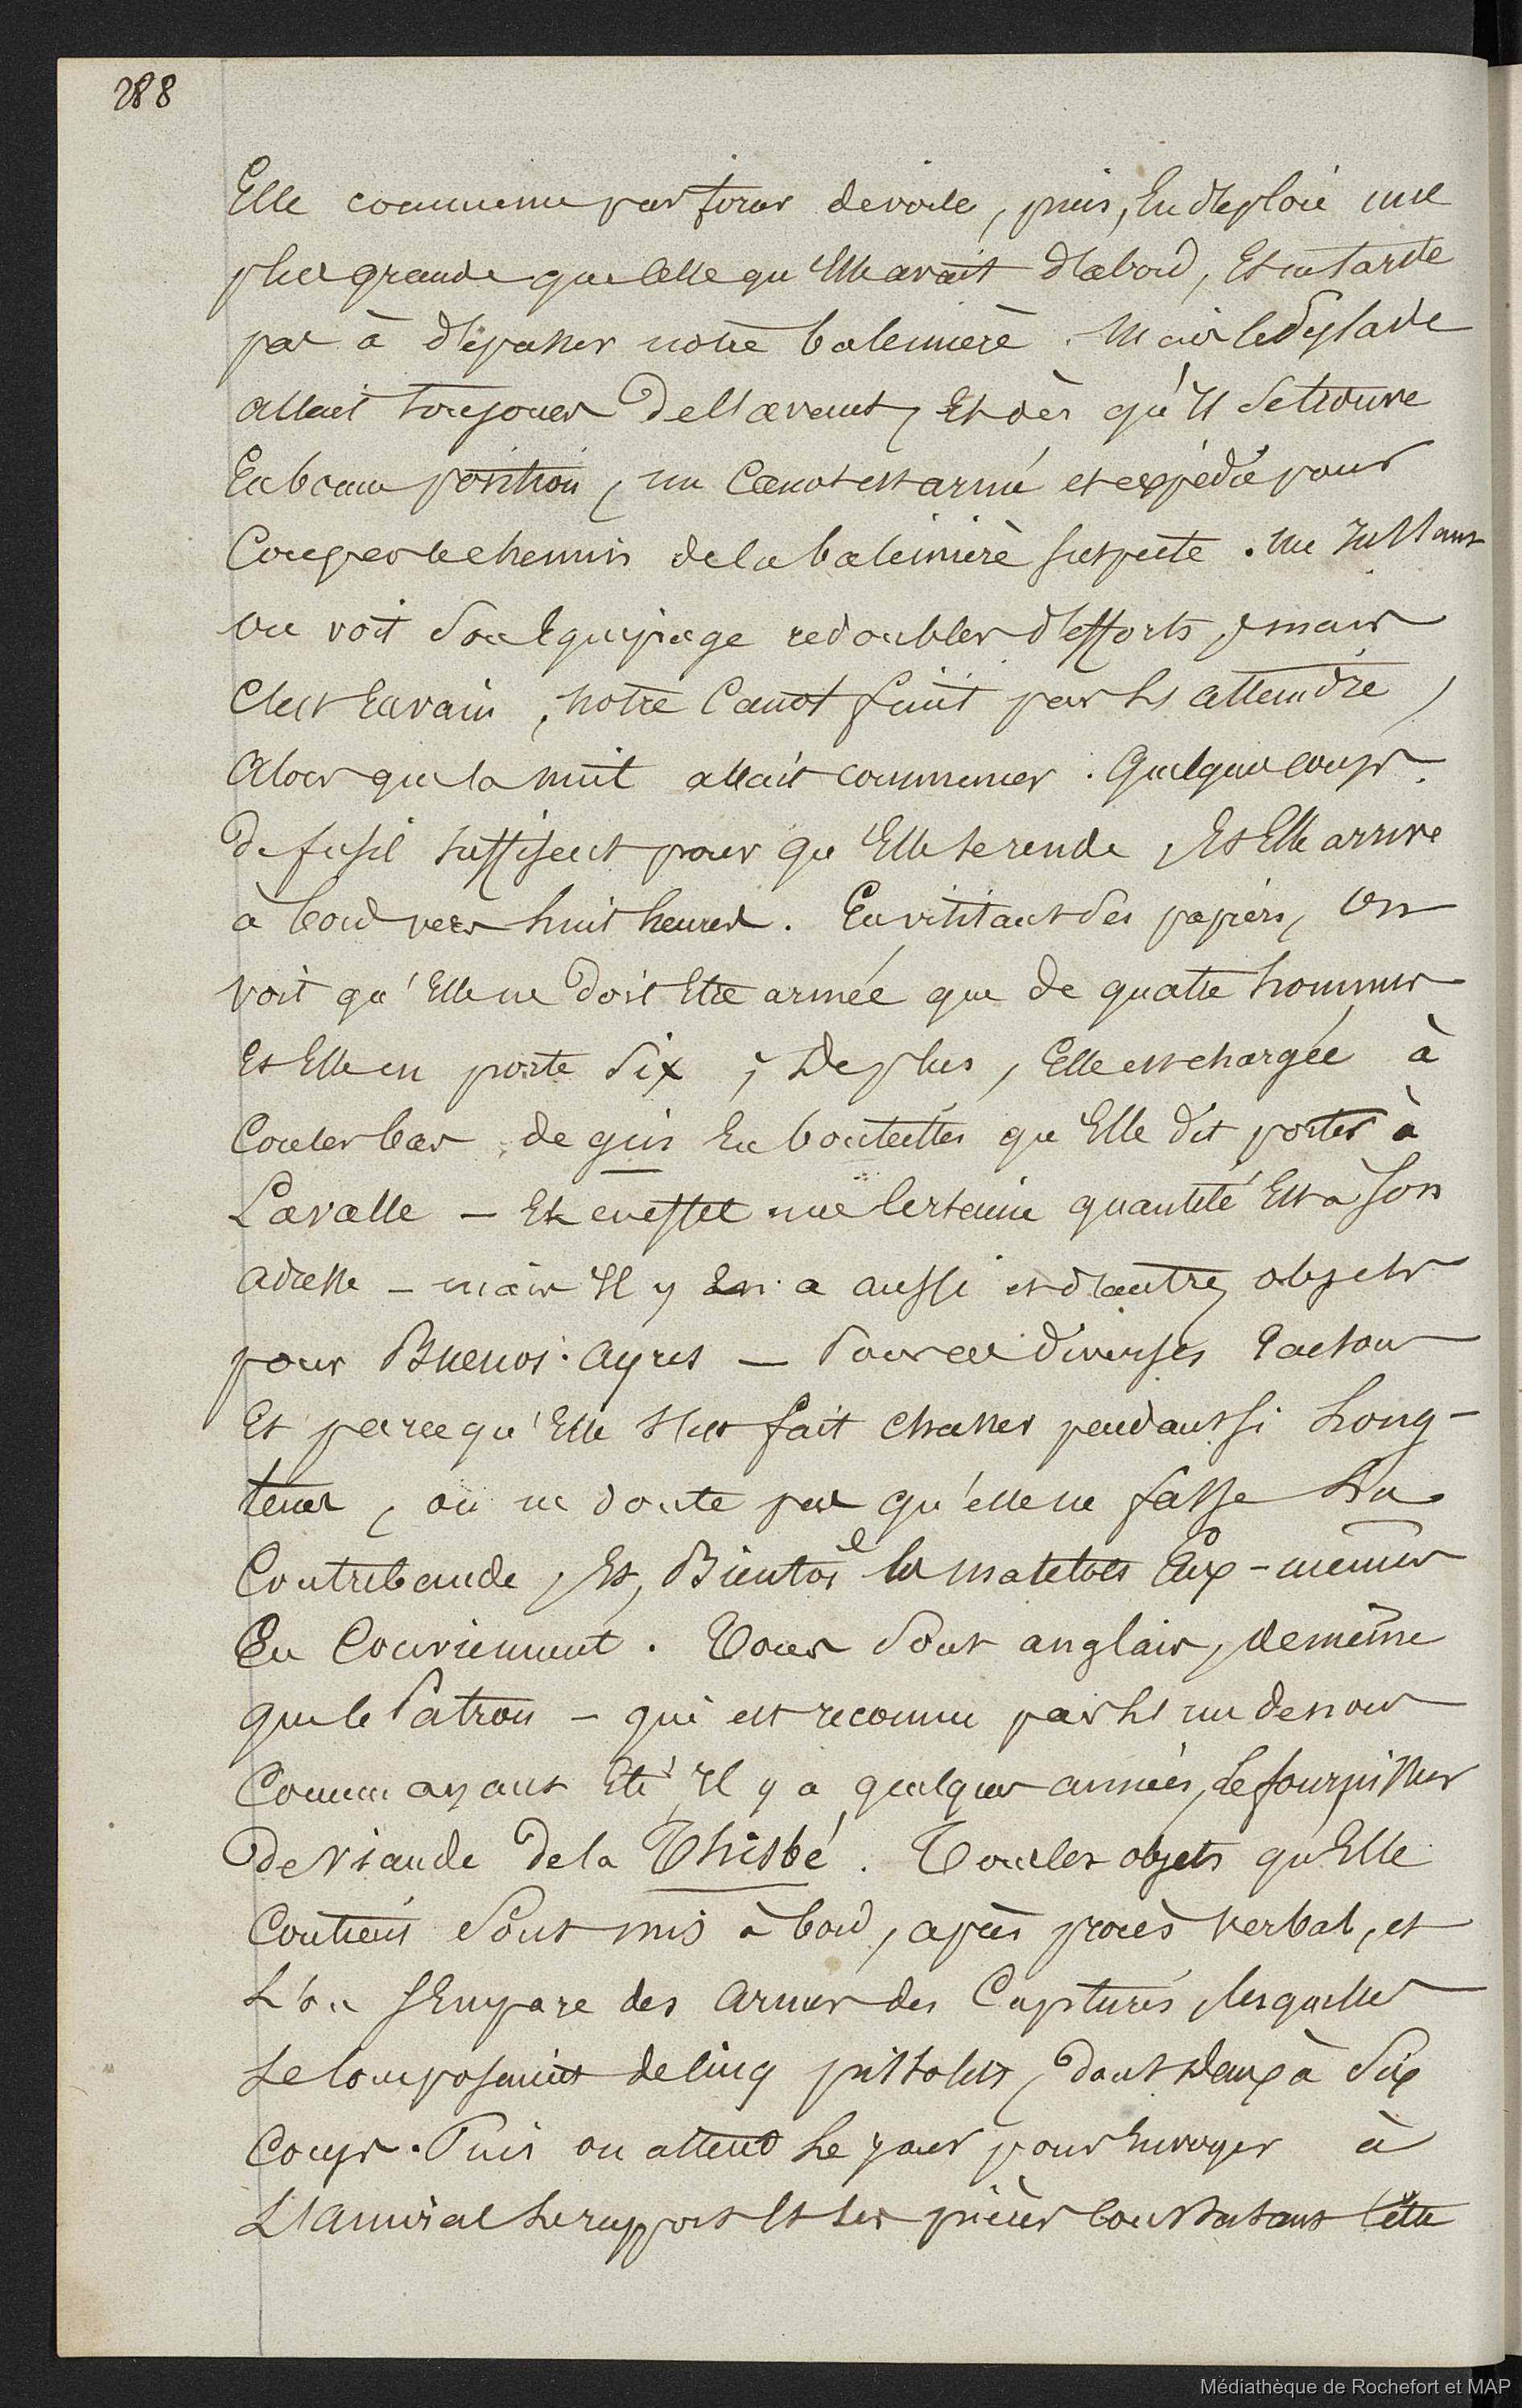 288
Elle commence par forcer de voile, puis, En déploie une
plus grande que Celle qu'Elle avait d'abord, Et ne tarde
pas à dépasser notre baleinière. Mais le Pylade
allait toujours de l'avant, Et dès qu'Il se trouve
En bonne position, un Canot est armé et expédié pour
Couper le chemin de la baleinière suspecte. Un Instant
On voit son Equipage redoubler d'efforts, mais
C'est En vain, notre Canot finit par les atteindre,
Alors que la nuit allait commencer. Quelques coups
De fusil suffisent pour qu'Elle se rende, Et Elle arrive
à bord vers huit heures. En visitant ses papiers, On
voit qu'Elle ne doit Etre armée que de quatre hommes
Et Elle en porte Six ; De plus, Elle est chargée à
Couler bas de gin En bouteilles qu'Elle dit porter à
Lavalle – Et en effet une Certaine quantité Est à Son
adresse – mais Il y En a aussi et d'autres objets
pour Buenos-Ayres – Pour ces diverses raisons
Et parce qu'Elle s'est fait chasser pendant si Long-
tems, on ne doute pas qu'elle ne fasse La
Contrebande, Et, Bientôt les matelots Eux-mêmes
En Conviennent. Tous Sont anglais, de même
que le Patron – qui est reconnu par l'un de nous
Comme ayant Eté, Il y a quelques années, Le fournisseur
de Viande de la Thisbé. Tous les objets qu'Elle
Contient Sont mis à bord, après procès verbal, et
L'on s'Empare des Armes des Capturés, lesquelles
Se Composaient de Cinq pistolets, dont Deux à Six
Coups. Puis on attend Le jour pour Envoyer à
L'Amiral Le rapport Et les pièces Constatant Cette
Médiathèque de Rochefort et MAP